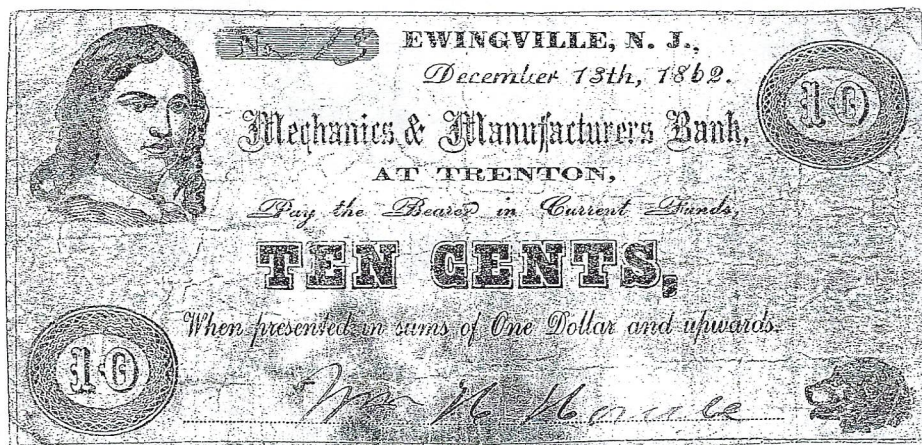 No. 13
EWINGVILLE, N. J.,
December 13th, 1862.
10
Mechanics & Manufacturers Bank,
AT TRENTON,
Pay the Bearer in Current Funds,
TEN CENTS,
When presented in sums of One Dollar and upwards.
10
Wm H